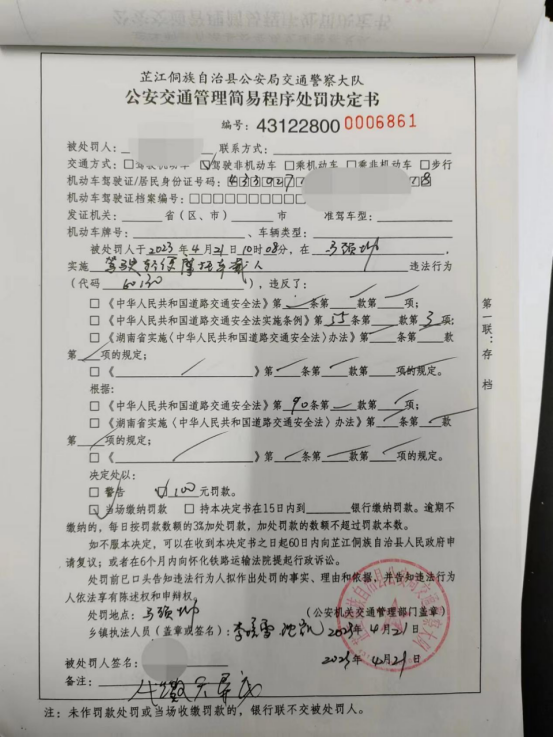 芷江侗族自治县公安局交通警察大队
公安交通管理简易程序处罚决定书
编号：43122800 0006861
被处罚人： 联系方式：
交通方式：□驾驶机动车 ☑驾驶非机动车 □乘机动车 □乘非机动车 □步行
机动车驾驶证/居民身份证号码：
机动车驾驶证档案编号：□□□□□□□□□□□□
发证机关： 省（区、市） 市 准驾车型：
机动车牌号： 、车辆类型：
被处罚人于2023年4月21日10时08分，在
实施 违法行为
（代码 ），违反了：
□《中华人民共和国道路交通安全法》第 条第 款第 项；
□《中华人民共和国道路交通安全法实施条例》第55条第 款第3项；
□《湖南省实施〈中华人民共和国道路交通安全法〉办法》第 条第 款
第 项的规定；
□《 》第 条第 款第 项的规定。
根据：
□《中华人民共和国道路交通安全法》第90条第 款第 项；
□《湖南省实施〈中华人民共和国道路交通安全法〉办法》第 条第 款
第 项的规定；
□《 》第 条第 款第 项的规定。
决定处以：
□ 警告 ☑100元罚款。
☑当场缴纳罚款 □ 持本决定书在15日内到 银行缴纳罚款。逾期不
缴纳的，每日按罚款数额的3%加处罚款，加处罚款的数额不超过罚款本数。
如不服本决定，可以在收到本决定书之日起60日内向芷江侗族自治县人民政府申
请复议；或者在6个月内向怀化铁路运输法院提起行政诉讼。
处罚前已口头告知违法行为人拟作出处罚的事实、理由和依据，并告知违法行为
人依法享有陈述权和申辩权。
处罚地点： （公安机关交通管理部门盖章）
乡镇执法人员（盖章或签名）： 2023年4月21日
被处罚人签名： 2023年4月21日
备注：
注：未作罚款处罚或当场收缴罚款的，银行联不交被处罚人。
第一联：存档